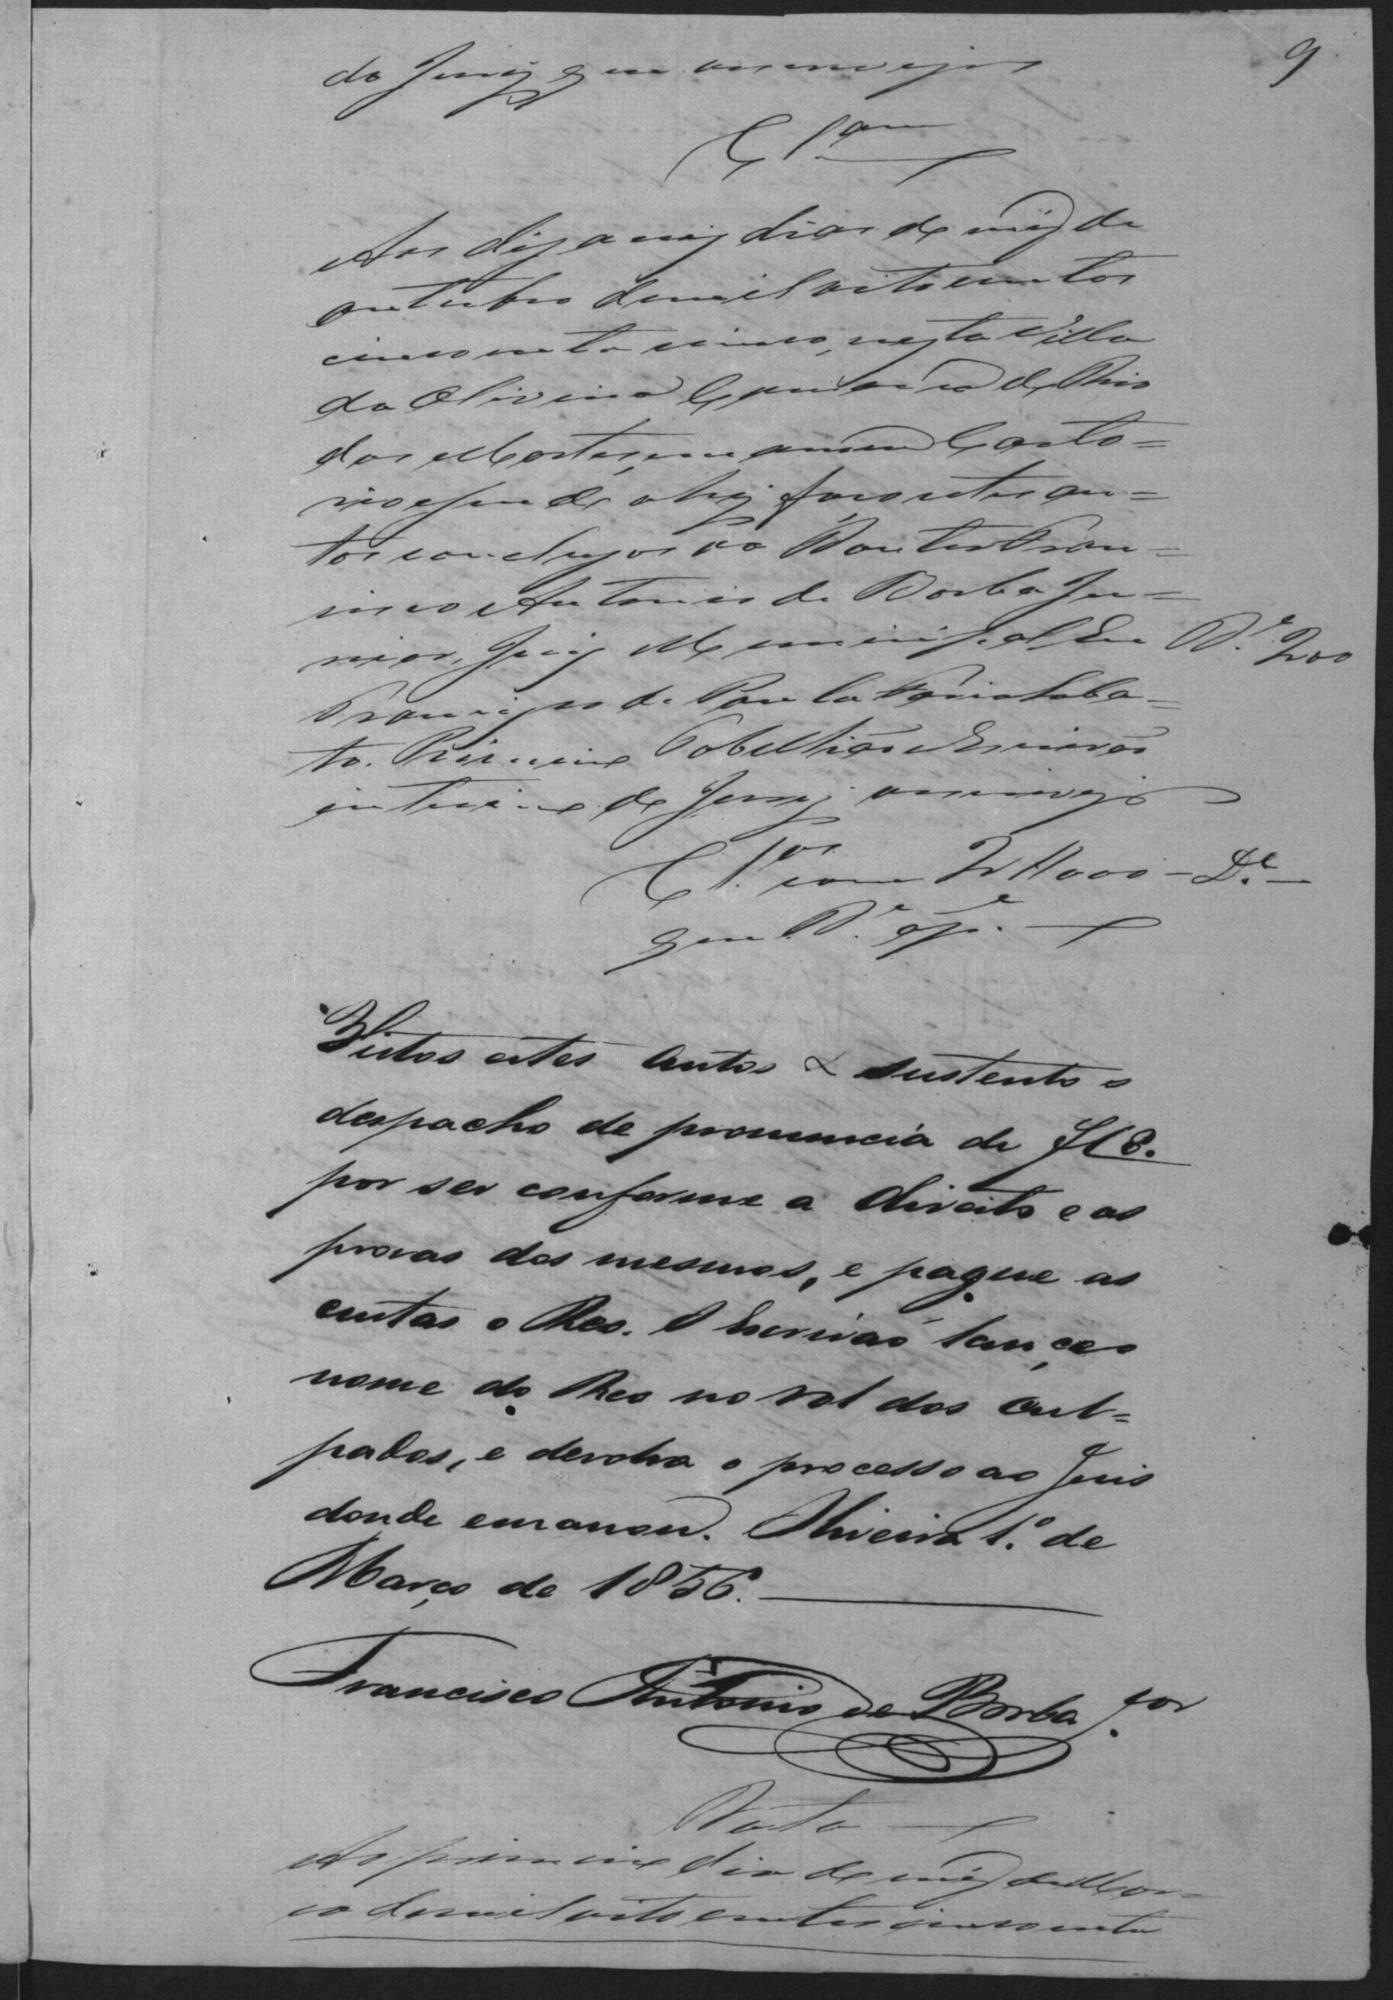 9
do Jury que o escrevy
Cl.am
Aos dezaseis dias do mez de
outubro de mil oito centos
cincoenta e cinco, nesta Villa
da Oliveira Comarca do Rio
das Mortes, em o meu Carto=
rio ahi faço estes au=
tos conclusos ao Doutor Fran=
cisco Antonio de Borba Ju=
nior, Juiz Municipal Eu
Francisco de Paula Loba=
to. Primeiro Tabellião Escrivão
interino do Jury o escrevy
D.e 200
Cl.os com
Vistos estes autos & sustento o
despacho de pronuncia de f 8.
por ser conforme a direito e as
provas dos mesmos, e pague as
custas o Reo. O Escrivão lance o
nome do Reo no rol dos cul=
pados, e devolva o processo ao Juis
donde emanou. Oliveira 1.º de
Março de 1856.
Francisco Antonio de Borba J.or
Data
Ao primeiro dia do mez de Mar=
ço de mil oito centos cincoenta